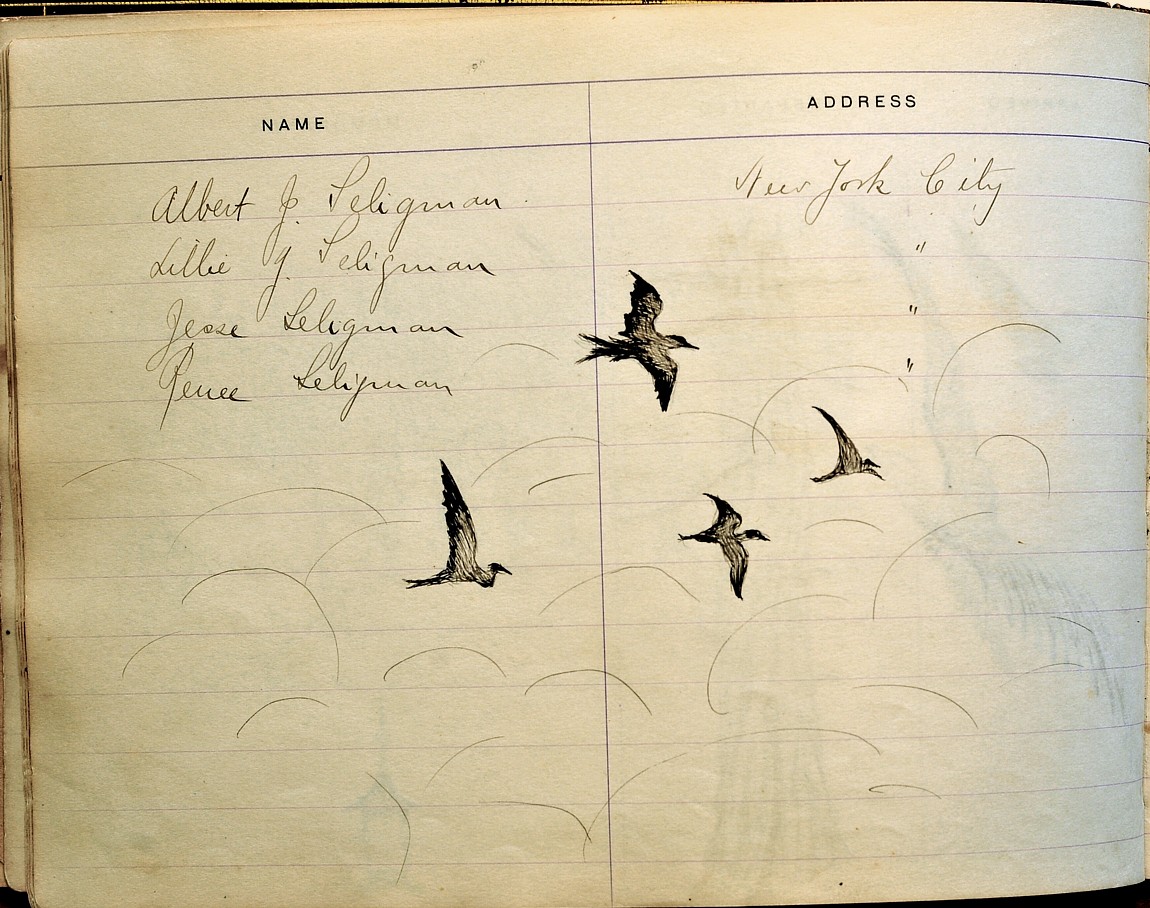 NAME ADDRESS
Albert J. Seligman New York City
Lillie G. Seligman "
Jesse Seligman "
Renee Seligman "